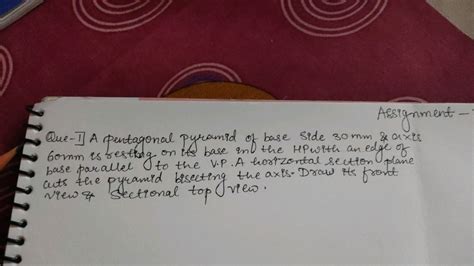 Assignment -
Que-1] A pentagonal pyramid of base side 30mm & axis
60mm is resting on its base in the HP with an edge of
base parallel to the V.P. A horizontal section plane
cuts the pyramid bisecting the axis. Draw its front
view & Sectional top view.